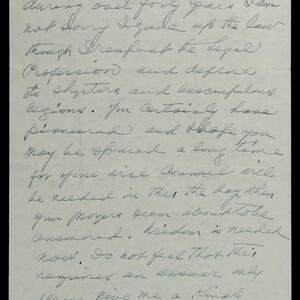 during over forty years I am
not sorry I gave up the law
though I respect the Legal
Profession and deplore
its shysters and unscrupulous
legions. You certainly have
pioneered and I hope you
may be spared a long time
for your wise Counsel will
be needed in this the day when
your prayers seem about to be
answered. Wisdom is needed
now. Do not feel that this
requires an answer only
give me a kindly